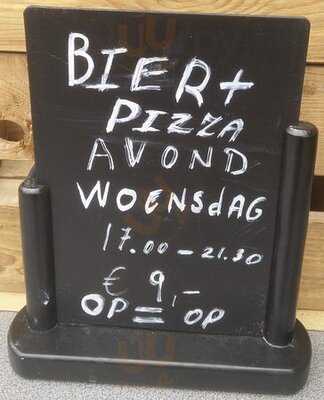 BIER +
PIZZA
AVOND
WOENSdAG
17.00 - 21.30
€ 9,-
OP = OP